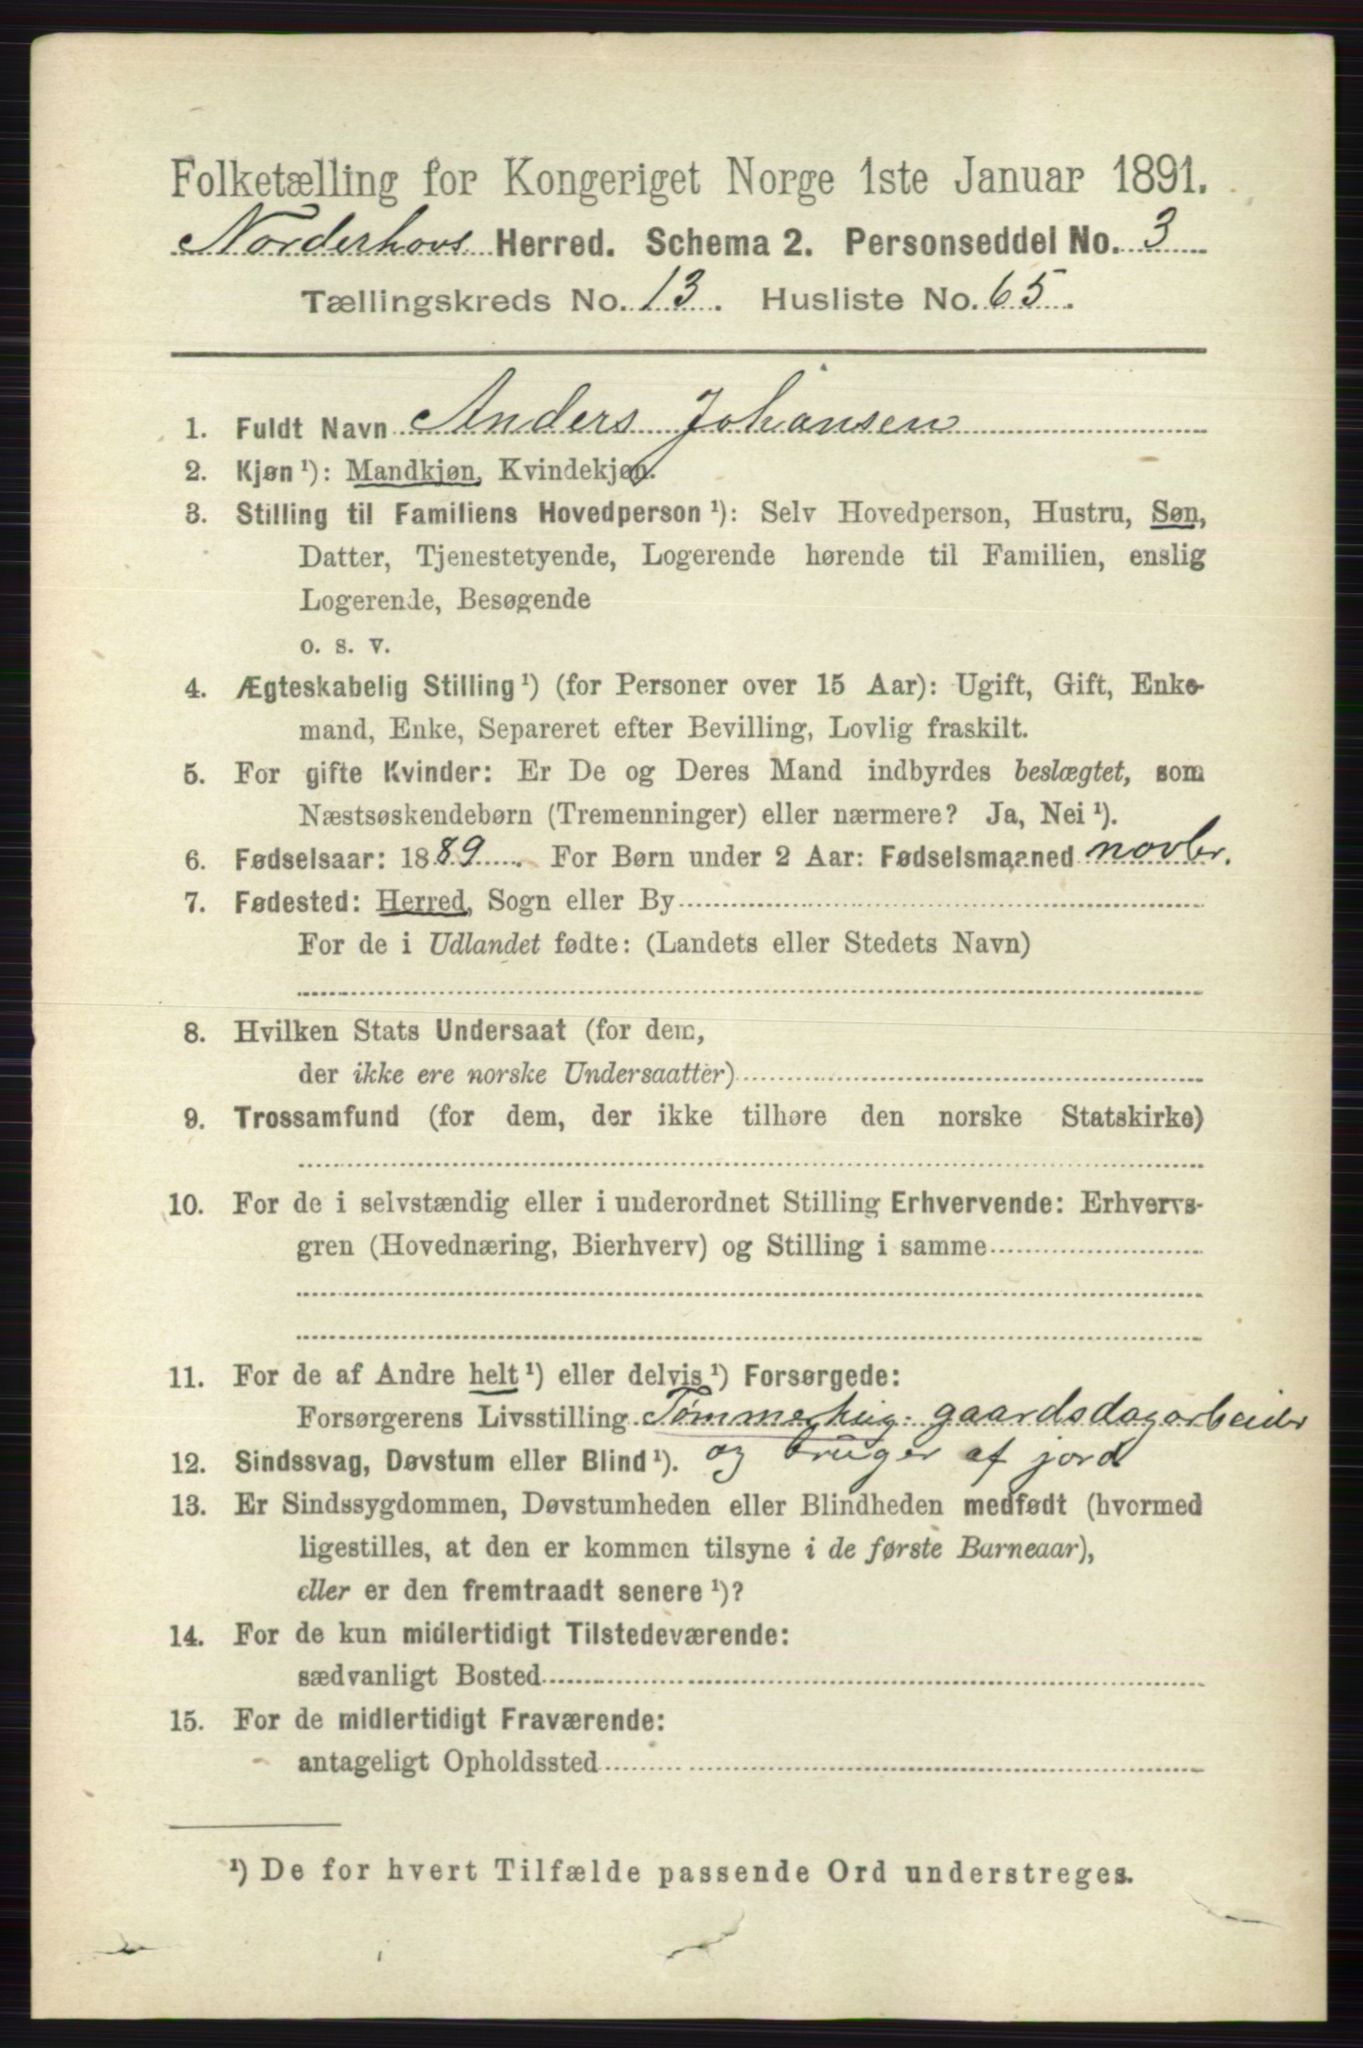 Folketælling for Kongeriget Norge 1ste Januar 1891.
Norderhovs Herred. Schema 2. Personseddel No. 3
Tællingskreds No. 13. Husliste No. 65.
1. Fuldt Navn Anders Johansen
2. Kjøn ¹): Mandkjøn, Kvindekjøn.
3. Stilling til Familiens Hovedperson ¹): Selv Hovedperson, Hustru, Søn,
Datter, Tjenestetyende, Logerende hørende til Familien, enslig
Logerende, Besøgende
o. s. v.
4. Ægteskabelig Stilling ¹) (for Personer over 15 Aar): Ugift, Gift, Enke-
mand, Enke, Separeret efter Bevilling, Lovlig fraskilt.
5. For gifte Kvinder: Er De og Deres Mand indbyrdes beslægtet, som
Næstsøskendebørn (Tremenninger) eller nærmere? Ja, Nei ¹).
6. Fødselsaar: 1889. For Børn under 2 Aar: Fødselsmaaned novbr.
7. Fødested: Herred, Sogn eller By
For de i Udlandet fødte: (Landets eller Stedets Navn)
8. Hvilken Stats Undersaat (for dem,
der ikke ere norske Undersaatter)
9. Trossamfund (for dem, der ikke tilhøre den norske Statskirke)
10. For de i selvstændig eller i underordnet Stilling Erhvervende: Erhvervs-
gren (Hovednæring, Bierhverv) og Stilling i samme
11. For de af Andre helt ¹) eller delvis ¹) Forsørgede:
Forsørgerens Livsstilling Tømmerhug- gaardsdagarbeider
12. Sindssvag, Døvstum eller Blind ¹). og bruger af jord
13. Er Sindssygdommen, Døvstumheden eller Blindheden medfødt (hvormed
ligestilles, at den er kommen tilsyne i de første Barneaar),
eller er den fremtraadt senere ¹)?
14. For de kun midlertidigt Tilstedeværende:
sædvanligt Bosted
15. For de midlertidigt Fraværende:
antageligt Opholdssted
¹) De for hvert Tilfælde passende Ord understreges.